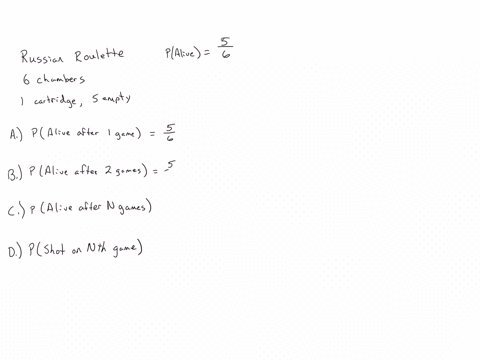 Russian Roulette P(Alive) = 5/6
6 chambers
1 cartridge, 5 empty
A.) P(Alive after 1 game) = 5/6
B.) P(Alive after 2 games) = 5
C.) P(Alive after N games)
D.) P(Shot on Nth game)